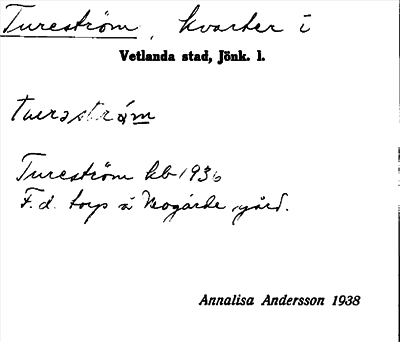 Tureström, kvarter i
Vetlanda stad, Jönk. l.
Tureström kb 1936
F.d. torp å gård.
Annalisa Andersson 1938